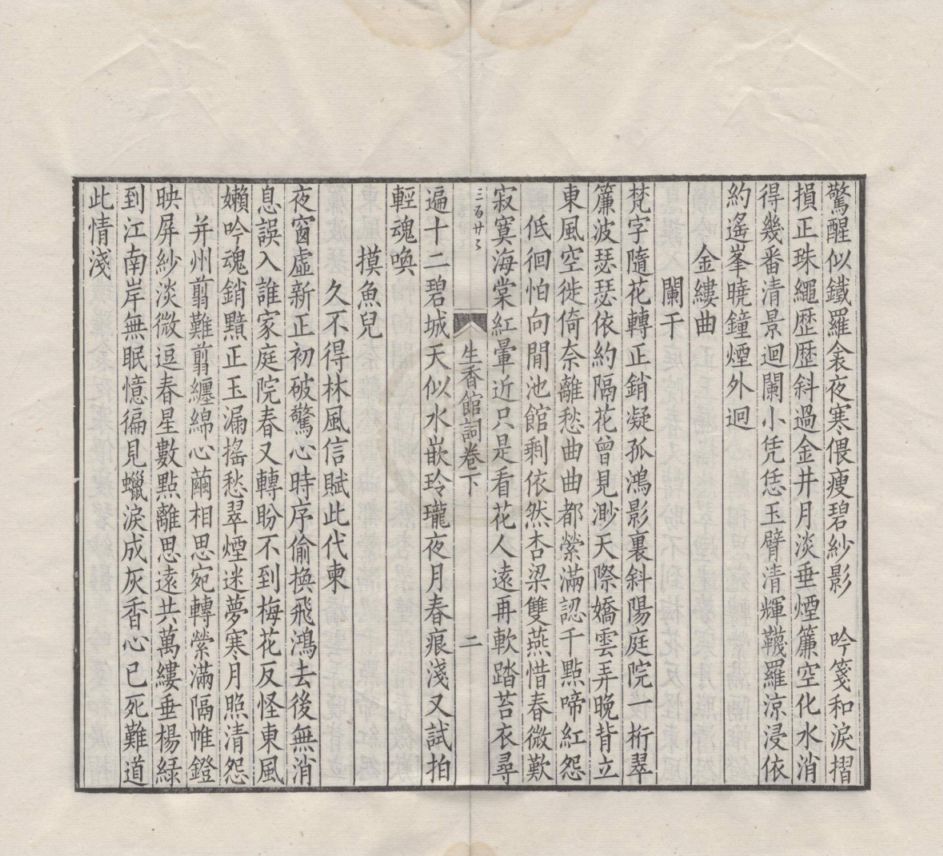 驚醒似鐵羅衾夜寒偎瘦碧紗影　吟箋和淚摺
損正珠繩歷歷斜過金井月淡垂煙簾空化水消
得幾番清景迴闌小凭恁玉臂清輝韈羅涼浸依
約遙峯曉鐘煙外迥
金縷曲
闌干
梵字隨花轉正銷凝孤鴻影裏斜陽庭院一桁翠
簾波瑟瑟依約隔花曾見渺天際嬌雲弄晚背立
東風空徙倚奈離愁曲曲都縈滿認千點啼紅怨
低徊怕向閒池館剩依然杏梁雙燕惜春微歎
寂寞海棠紅暈近只是看花人遠再軟踏苔衣尋
三百廿六
生香館詞卷下
二
遍十二碧城天似水嵌玲瓏夜月春痕淺又試拍
輕魂喚
摸魚兒
久不得林風信賦此代柬
夜窗虛新正初破驚心時序偷換飛鴻去後無消
息誤入誰家庭院春又轉盼不到梅花反怪東風
嬾吟魂銷黯正玉漏搖愁翠煙迷夢寒月照清怨
并州翦難翦纏綿心繭相思宛轉縈滿隔帷鐙
映屏紗淡微逗春星數點離思遠共萬縷垂楊綠
到江南岸無眠憶徧見蠟淚成灰香心已死難道
此情淺